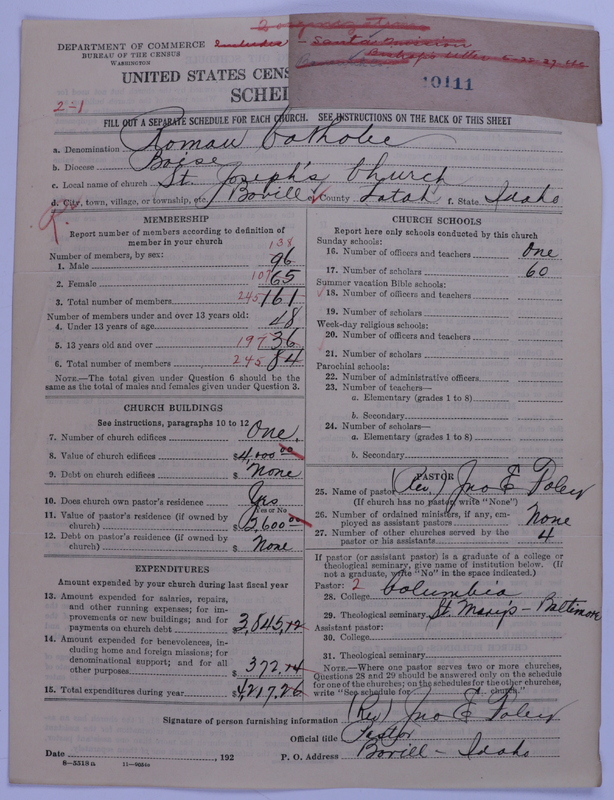 2 organizations
Includes - Santa Mission
Bishop's letter 5-22,27,46
10111
DEPARTMENT OF COMMERCE
BUREAU OF THE CENSUS
WASHINGTON
UNITED STATES CENS
SCHED
2-1
FILL OUT A SEPARATE SCHEDULE FOR EACH CHURCH. SEE INSTRUCTIONS ON THE BACK OF THIS SHEET
a. Denomination Roman Catholic
b. Diocese Boise
c. Local name of church St. Joseph's Church
d. City, town, village, or township, etc. Bovill e. County Latah f. State Idaho
MEMBERSHIP
Report number of members according to definition of
member in your church
Number of members, by sex:
138
1. Male 96
2. Female 107 65
3. Total number of members 245 161
Number of members under and over 13 years old:
4. Under 13 years of age 48
5. 13 years old and over 197 36
6. Total number of members 245 84
NOTE.—The total given under Question 6 should be the
same as the total of males and females given under Question 3.
CHURCH BUILDINGS
See instructions, paragraphs 10 to 12
7. Number of church edifices One.
8. Value of church edifices $ 4,000.00
9. Debt on church edifices $ None
10. Does church own pastor's residence? Yes
Yes or No
11. Value of pastor's residence (if owned by
church) $ 2,600.00
12. Debt on pastor's residence (if owned by
church) $ None
EXPENDITURES
Amount expended by your church during last fiscal year
13. Amount expended for salaries, repairs,
and other running expenses; for im-
provements or new buildings; and for
payments on church debt $ 3,845.12
14. Amount expended for benevolences, in-
cluding home and foreign missions; for
denominational support; and for all
other purposes $ 372.14
15. Total expenditures during year $ 4,217.26
CHURCH SCHOOLS
Report here only schools conducted by this church
Sunday schools:
16. Number of officers and teachers One
17. Number of scholars 60
Summer vacation Bible schools:
18. Number of officers and teachers
19. Number of scholars
Week-day religious schools:
20. Number of officers and teachers
21. Number of scholars
Parochial schools:
22. Number of administrative officers
23. Number of teachers—
a. Elementary (grades 1 to 8)
b. Secondary
24. Number of scholars—
a. Elementary (grades 1 to 8)
b. Secondary
PASTOR
25. Name of pastor (Rev.) Jno E Foley
(If church has no pastor, write "None")
26. Number of ordained ministers, if any, em-
ployed as assistant pastors None
27. Number of other churches served by the
pastor or his assistants 4
If pastor (or assistant pastor) is a graduate of a college or
theological seminary, give name of institution below. (If
not a graduate, write "No" in the space indicated.)
Pastor: 2
28. College Columbia
29. Theological seminary St. Mary's - Baltimore
Assistant pastor:
30. College
31. Theological seminary
NOTE.—Where one pastor serves two or more churches,
Questions 28 and 29 should be answered only on the schedule
for one of the churches; on the schedules for the other churches,
write "See schedule for church."
Signature of person furnishing information (Rev) Jno E Foley
Official title Pastor
Date , 192 P. O. Address Bovill - Idaho
8-5518a